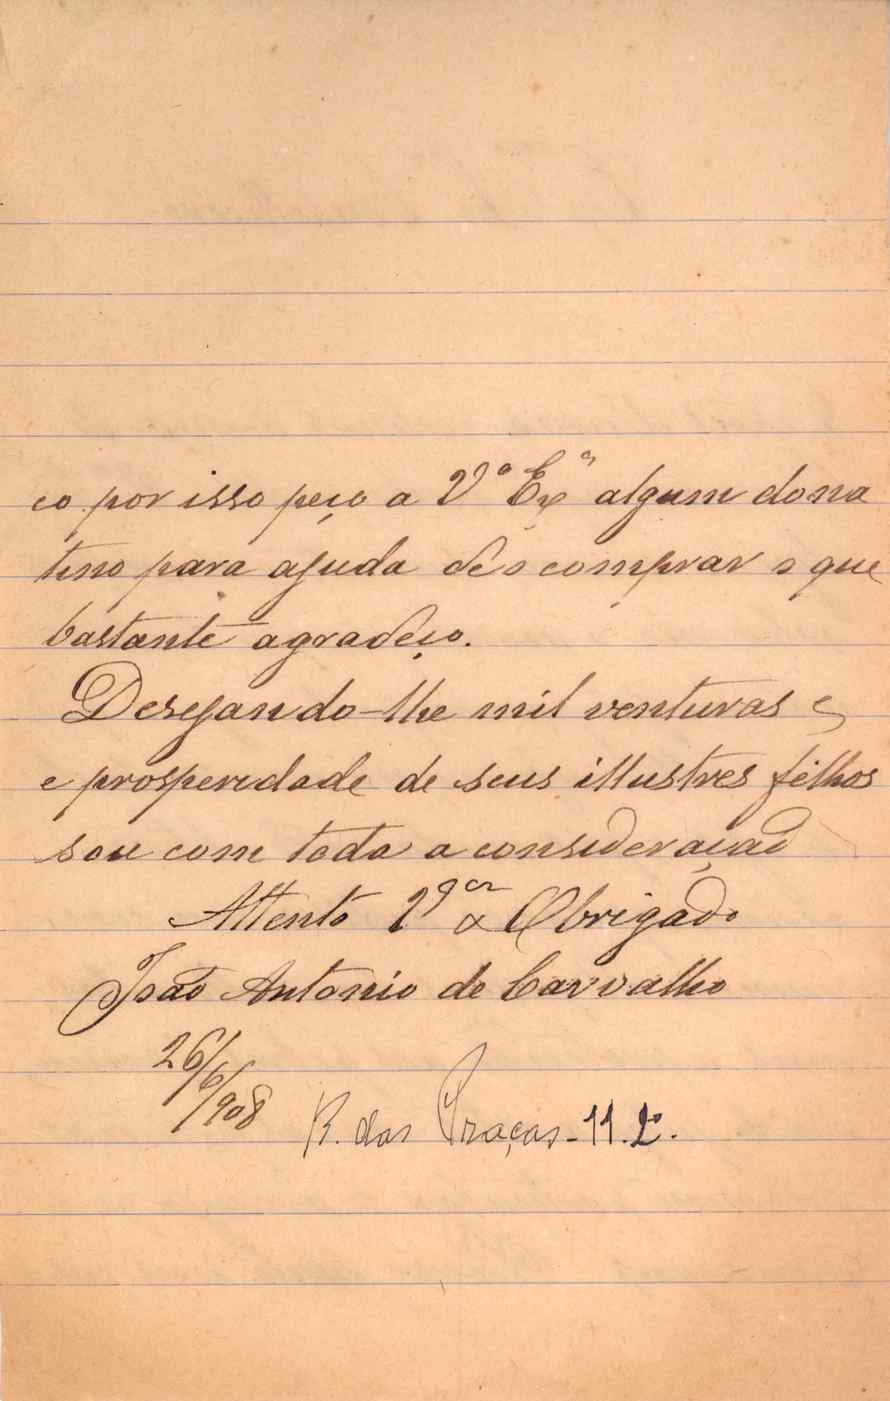 co por isso peço a Vª Exª algum dona
tivo para ajuda de o comprar o que
bastante agradeço.
Desejando-lhe mil venturas e
e prosperidade de seus illustres filhos
sou com toda a consideração
Attento Vor & Obrigado
João Antonio de Carvalho
26/6/908
R. das Praças-11.2º.